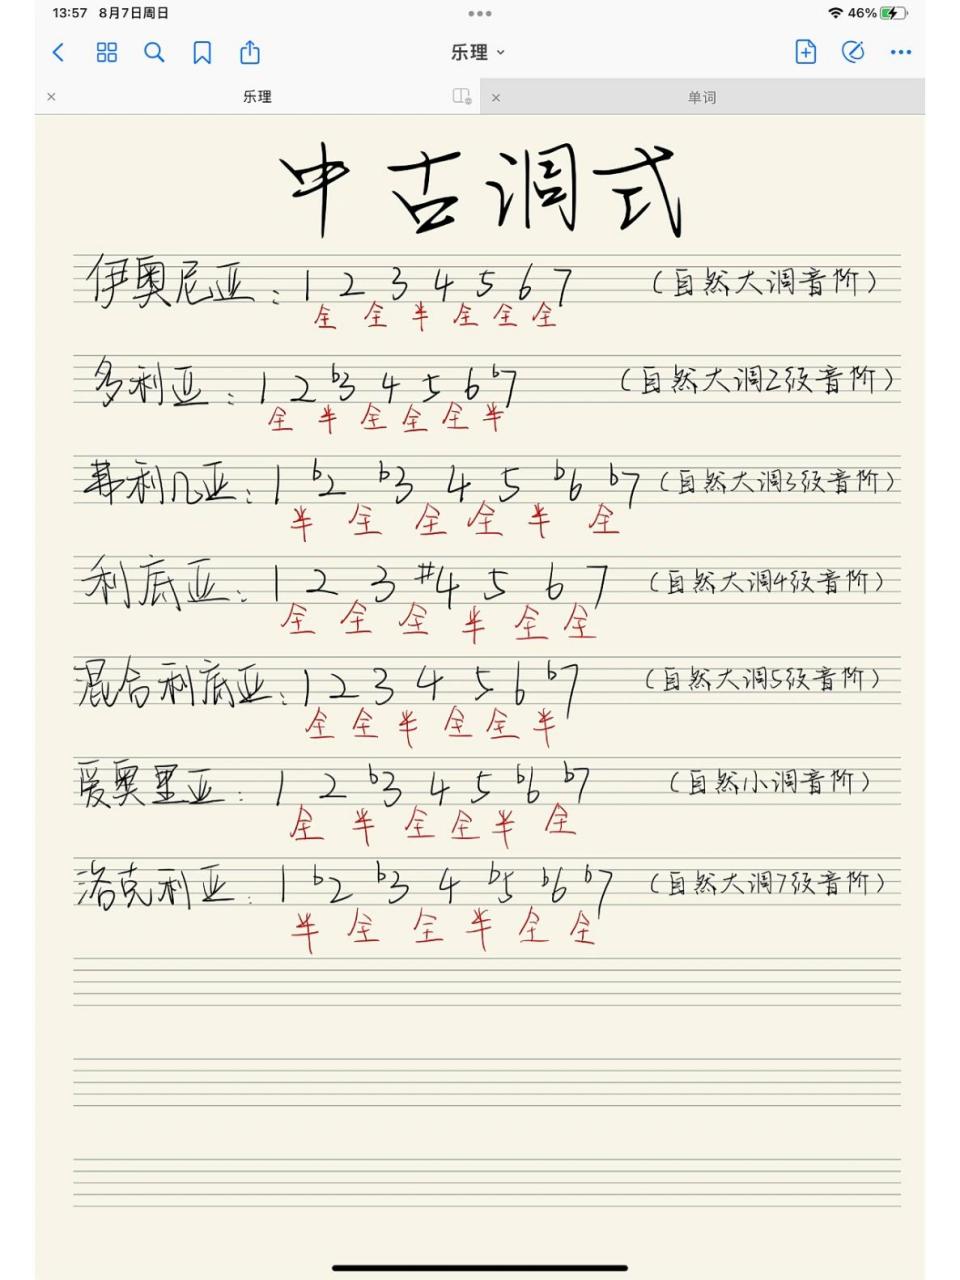 13:57 8月7日周日 46%
乐理
乐理 单词
中古调式
伊奥尼亚: 1 2 3 4 5 6 7 (自然大调音阶)
全 全 半 全 全 全
多利亚: 1 2 b3 4 5 6 b7 (自然大调2级音阶)
全 半 全 全 全 半
弗利几亚: 1 b2 b3 4 5 b6 b7 (自然大调3级音阶)
半 全 全 全 半 全
利底亚: 1 2 3 #4 5 6 7 (自然大调4级音阶)
全 全 全 半 全 全
混合利底亚: 1 2 3 4 5 6 b7 (自然大调5级音阶)
全 全 半 全 全 半
爱奥里亚: 1 2 b3 4 5 b6 b7 (自然小调音阶)
全 半 全 全 半 全
洛克利亚: 1 b2 b3 4 b5 b6 b7 (自然大调7级音阶)
半 全 全 半 全 全